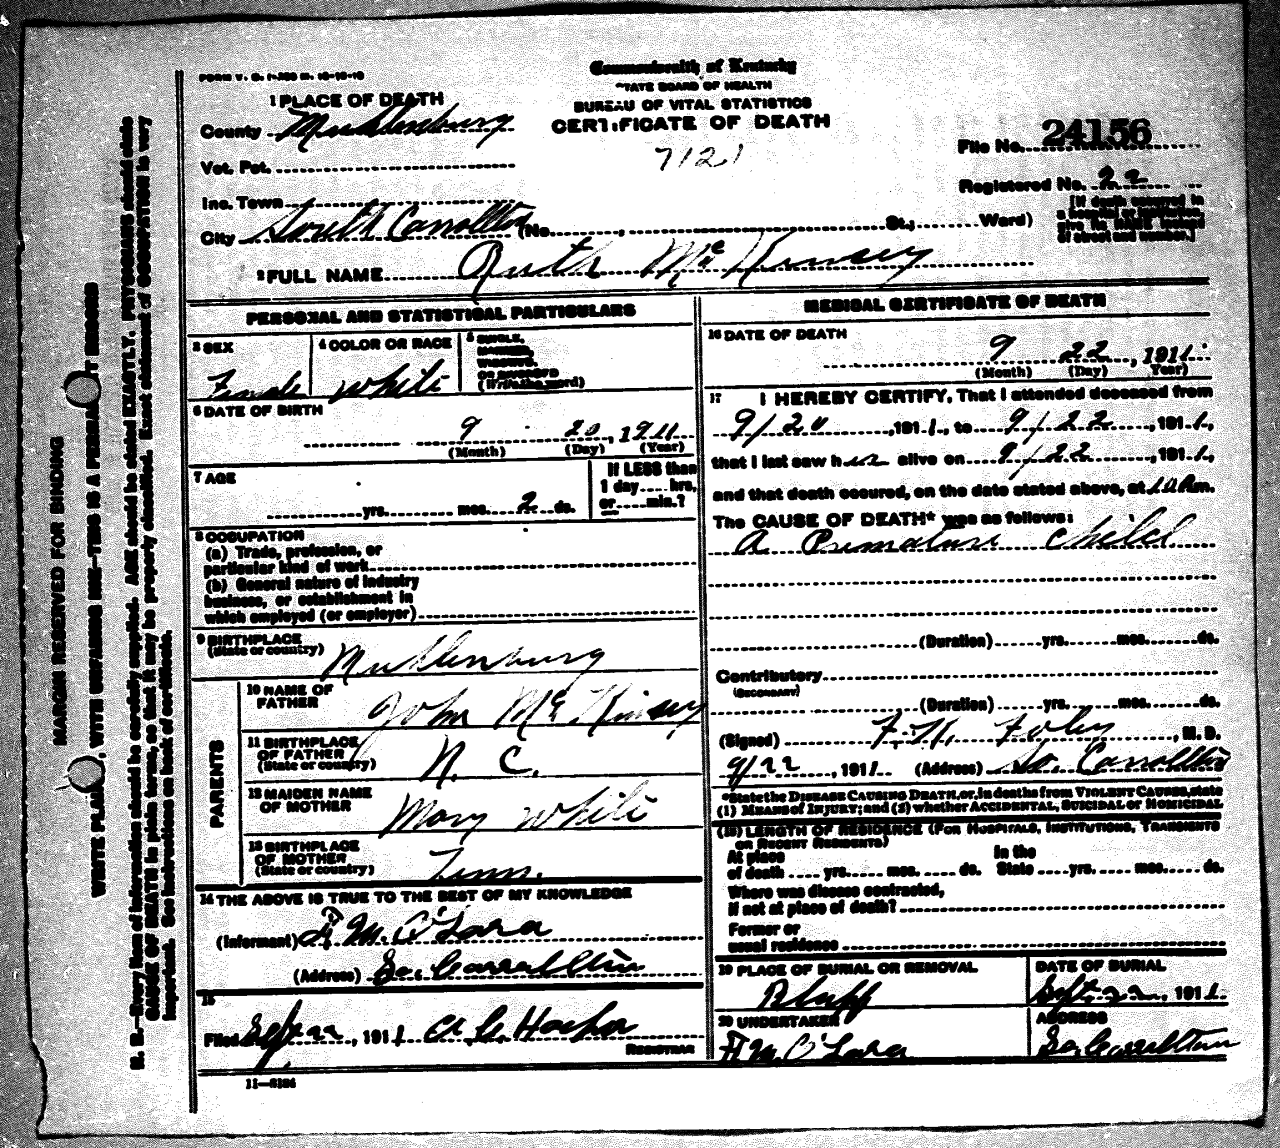 FORM V. S. 1-A50 M. 10-19-10
Commonwealth of Kentucky
STATE BOARD OF HEALTH
BUREAU OF VITAL STATISTICS
CERTIFICATE OF DEATH
7121
1 PLACE OF DEATH
County Muhlenburg
Vot. Pct.
Inc. Town
City South Carrollton (No. , St.; Ward)
File No. 24156
Registered No. 22
[If death occurred in a hospital or institution give its NAME instead of street and number.]
2 FULL NAME Ruth McKinsey
PERSONAL AND STATISTICAL PARTICULARS
3 SEX
Female
4 COLOR OR RACE
White
5 SINGLE,
MARRIED,
WIDOWED,
OR DIVORCED
(Write the word)
6 DATE OF BIRTH
9 20, 1911
(Month) (Day) (Year)
7 AGE
yrs. mos. 2 ds.
If LESS than
1 day hrs.
or min.?
8 OCCUPATION
(a) Trade, profession, or
particular kind of work
(b) General nature of industry
business, or establishment in
which employed (or employer)
9 BIRTHPLACE
(State or country) Muhlenburg
PARENTS
10 NAME OF
FATHER John McKinsey
11 BIRTHPLACE
OF FATHER
(State or country) N. C.
12 MAIDEN NAME
OF MOTHER Mary White
13 BIRTHPLACE
OF MOTHER
(State or country) Tenn.
14 THE ABOVE IS TRUE TO THE BEST OF MY KNOWLEDGE
(Informant) M. O'Lara
(Address) So. Carrollton
15
Filed Sept 22, 1911
REGISTRAR
11—5184
MEDICAL CERTIFICATE OF DEATH
16 DATE OF DEATH
9 22, 1911
(Month) (Day) Year)
17 I HEREBY CERTIFY, That I attended deceased from
9/20, 1911, to 9/22, 1911,
that I last saw her alive on 9/22, 1911,
and that death occured, on the date stated above, at 10 A m.
The CAUSE OF DEATH* was as follows:
A Premature child
(Duration) yrs. mos. ds.
Contributory
(SECONDARY)
(Duration) yrs. mos. ds.
(Signed) F. H. Foley, M. D.
9/22, 1911 (Address) So. Carrollton
*State the DISEASE CAUSING DEATH, or, in deaths from VIOLENT CAUSES, state
(1) MEANS of INJURY; and (2) whether ACCIDENTAL, SUICIDAL or HOMICIDAL
(18) LENGTH OF RESIDENCE (FOR HOSPITALS, INSTITUTIONS, TRANSIENTS
OR RECENT RESIDENTS)
At place
of death yrs. mos. ds.
In the
State yrs. mos. ds.
Where was disease contracted,
if not at place of death?
Former or
usual residence
19 PLACE OF BURIAL OR REMOVAL
DATE OF BURIAL
Sept. 22, 1911
20 UNDERTAKER
M. O'Lara
ADDRESS
So. Carrollton
MARGIN RESERVED FOR BINDING
WRITE PLAINLY, WITH UNFADING INK—THIS IS A PERMANENT RECORD
N. B.—Every item of information should be carefully supplied. AGE should be stated EXACTLY. PHYSICIANS should state
CAUSE OF DEATH in plain terms, so that it may be properly classified. Exact statement of OCCUPATION is very
important. See instructions on back of certificate.